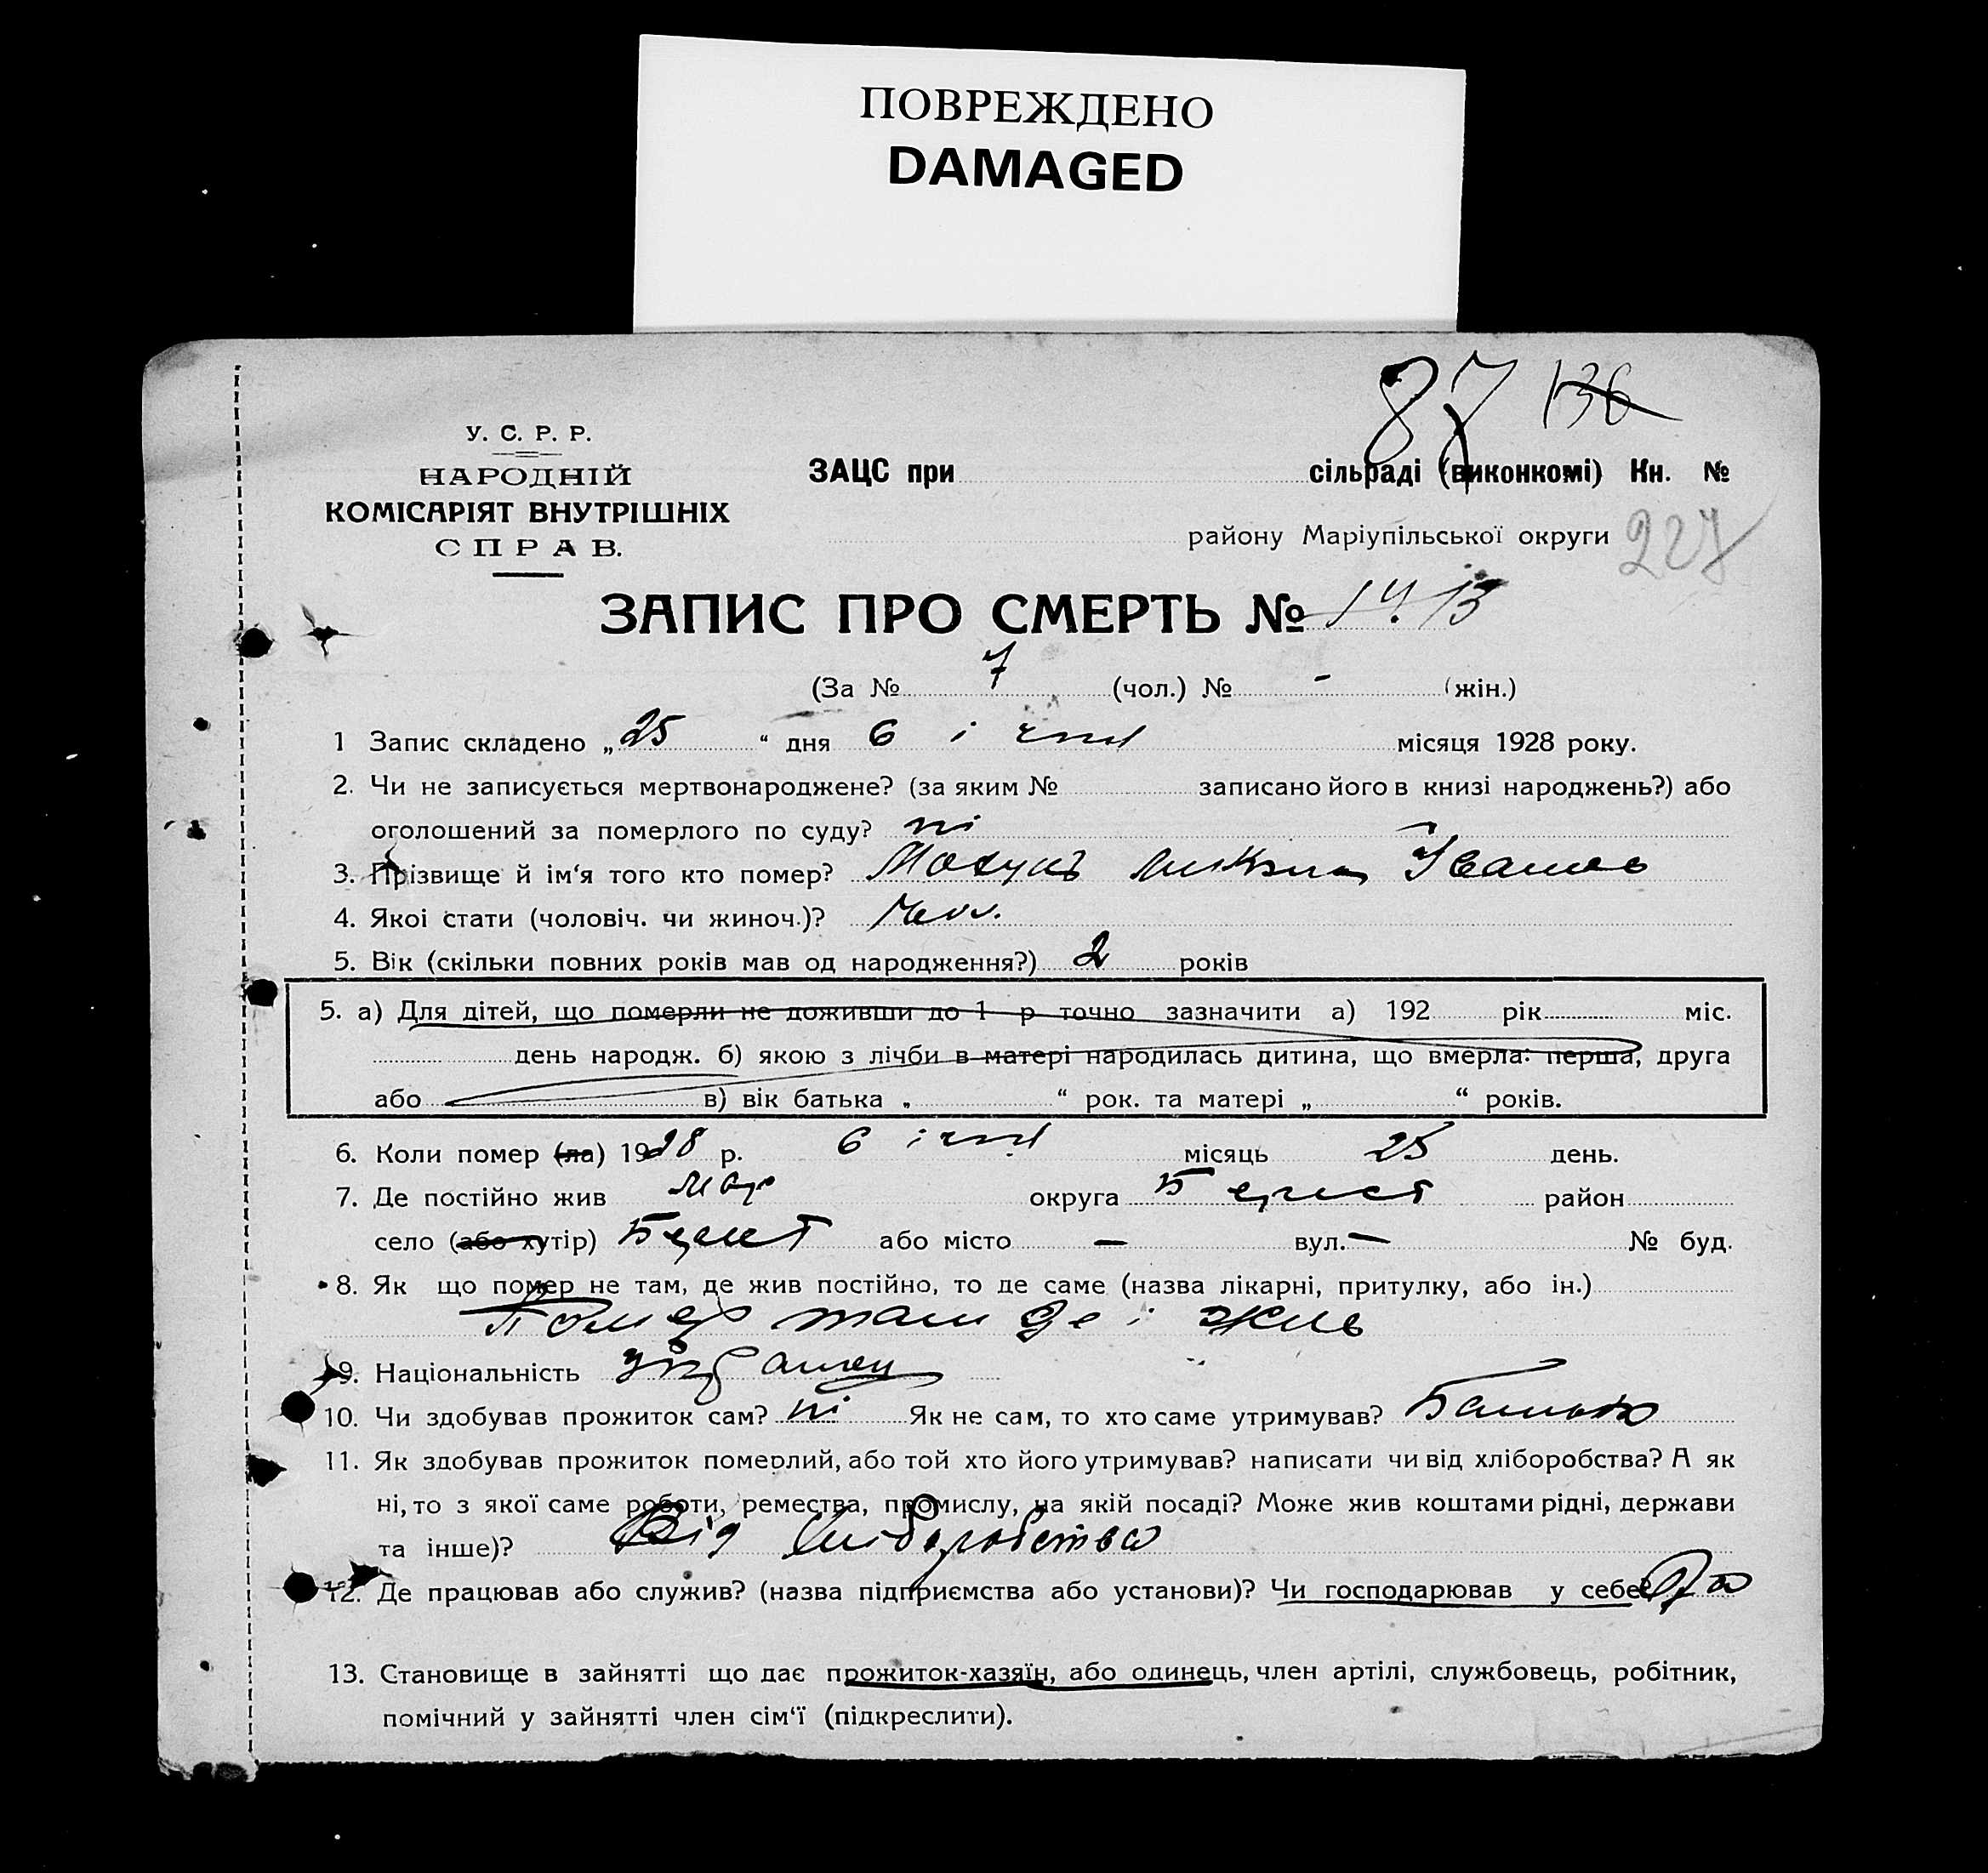 ПОВРЕЖДЕНО
DAMAGED
87 136
У. С. Р. Р.
НАРОДНІЙ
КОМІСАРІЯТ ВНУТРІШНІХ
СПРАВ.
ЗАЦС при сільраді (виконкомі) Кн. №
району Маріупільської округи 227
ЗАПИС ПРО СМЕРТЬ №
(За № 7 (чол.) № - (жін.)
1 Запис складено „ 25 “ дня 6 місяця 1928 року.
2. Чи не записується мертвонароджене? (за яким № записано його в книзі народжень?) або
оголошений за померлого по суду? ні
3. Прізвище й ім‘я того кто помер? Іванов
4. Якоі статі (чоловіч. чи жиноч.)? чол.
5. Вік (скільки повних років мав од народження?) 2 років
5. а) Для дітей, що померли не доживши до 1 р точно зазначити а) 192 рік міс.
день народж. б) якою з лічби в матері народилась дитина, що вмерла: перша, друга
або в) вік батька „ “ рок. та матері „ “ років.
6. Коли помер (ла) 1928 р. 6 місяць 25 день.
7. Де постійно жив Мар округа район
село (або хутір) або місто — вул. — № буд.
8. Як що помер не там, де жив постійно, то де саме (назва лікарні, притулку, або ін.)
Помер там де і жив
9. Національність
10. Чи здобував прожиток сам? ні Як не сам, то хто саме утримував? Батько
11. Як здобував прожиток померлий, або той хто його утримував? написати чи від хліборобства? А як
ні, то з якої саме роботи, ремества, промислу, на якій посаді? Може жив коштами рідні, держави
та інше)? Від хліборобства
12. Де працював або служив? (назва підприємства або установи)? Чи господарював у себе?
13. Становище в зайнятті що дає прожиток-хазяїн, або одинець, член артілі, службовець, робітник,
помічний у зайнятті член сім‘ї (підкреслити).